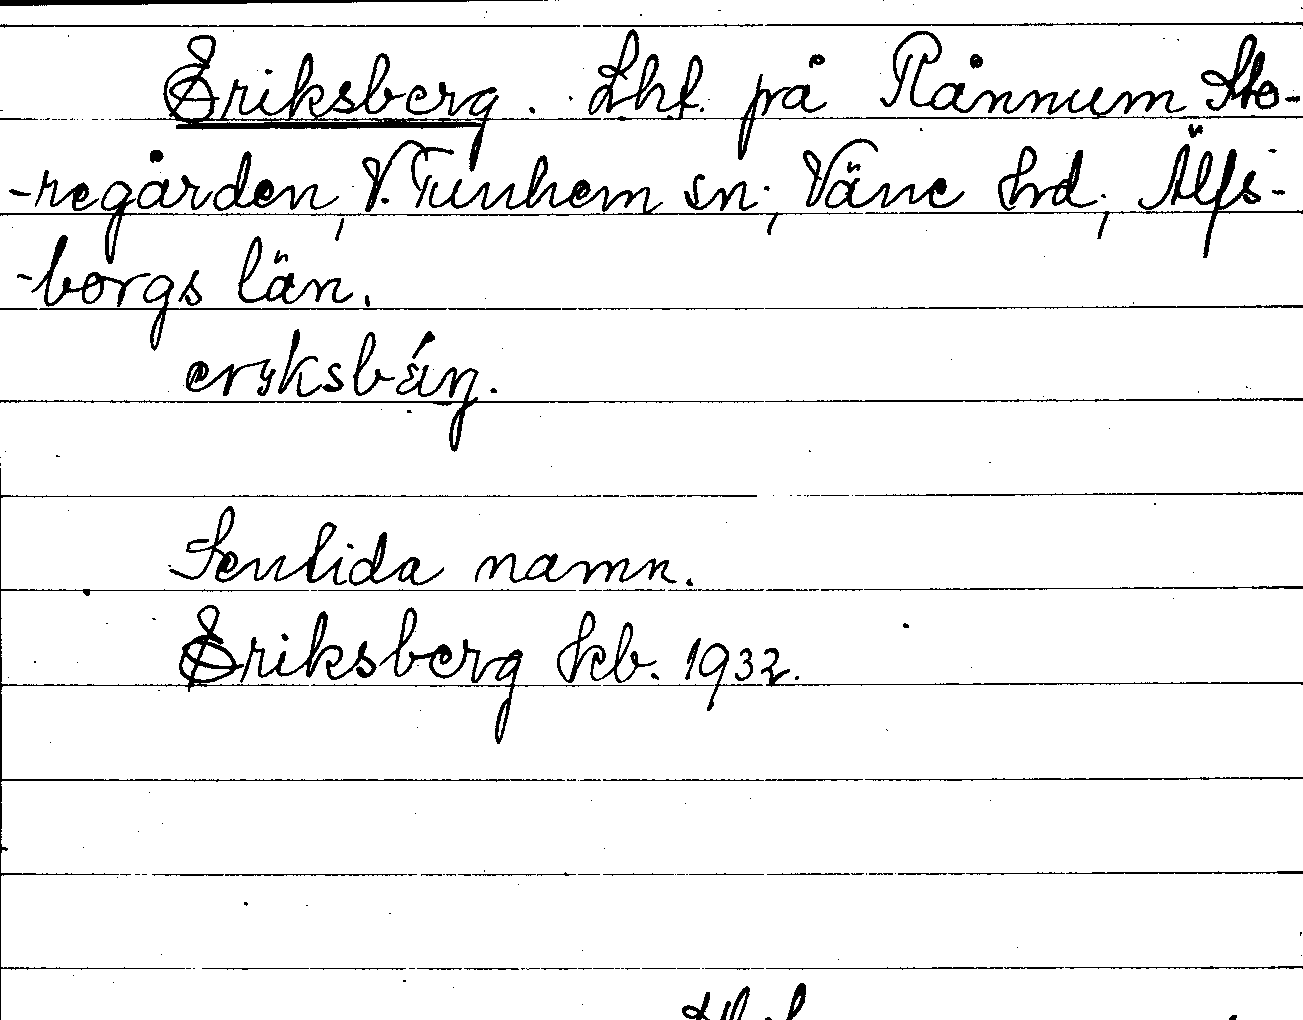 Eriksberg. Lhf. på Rånnum Sto-
-regården, V. Tunhem sn; Väne hrd; Älfs-
-borgs län.
Sentida namn.
Eriksberg Jeb. 1932.